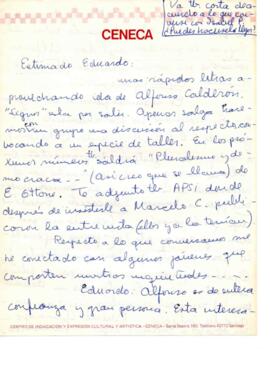 Va tb. carta de a
cuerdo a lo que con
versé con Isabel P.
¿Puedes hacérsela llegar?
CENECA
Estimado Eduardo:
unas rápidas letras a-
provechando ida de Alfonso Calderón.
"Signos" esta por salir. Apenas salga haré-
mos con grupo una discusión al respecto, con-
vocando a un especie de taller. En los pró-
ximos números tb saldrá "Pluralismo y de-
mocracia..." (así creo que se llama) de
E. Ottone. Te adjunto tb APSI donde
después de insistirle a Marcelo C. publi-
caron la entrevista (ellos ya la tenían)
Respecto a lo que conversamos me
he conectado con algunos jóvenes que
comparten nuestras inquietudes....
Eduardo: Alfonso es de entera
confianza y gran persona. Esta interesa-
CENTRO DE INDAGACION Y EXPRESION CULTURAL Y ARTISTICA - CENECA - Santa Beatriz 106, Teléfono 43772 Santiago